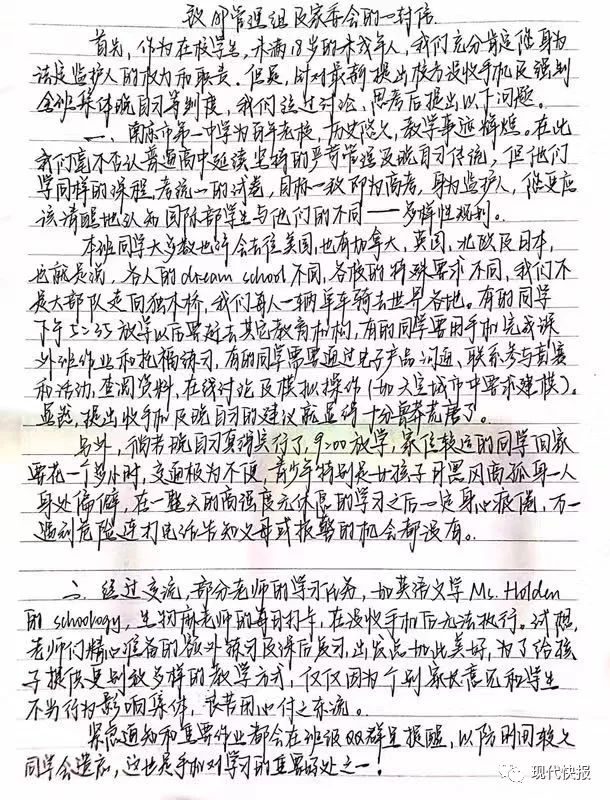 致邮管理组及家委会的一封信
首先，作为在校学生，未满18岁的未成年人，我们充分肯定您身为
该是监护人的权力和职责。但是，针对最新提出校方没收手机及强制
全班集体晚自习等制度，我们经过讨论、思考后提出以下问题。
一、南京市第一中学为百年老校，历史悠久，教学事迹辉煌。在此
我们毫不否认普通高中延读坚持的严苛管理及晚自习传统，但他们
学同样的课程，考统一的试卷，目标一致即为高考，身为监护人，您更应
该清醒地认知国际部学生与他们的不同——多样性规划。
本班同学大多数也许会去往美国，也有加拿大，英国，北欧及日本，
也就是说，各人的dream school不同，各校的特殊要求不同，我们不
是大部队走向独木桥，我们每人一辆单车骑去世界各地。有的同学
下午5:35放学以后要赶去其它教育机构，有的同学要用手机完成课
外班作业和托福练习，有的同学需要通过电子产品沟通、联系参与竞赛
和活动，查阅资料，在线讨论及模拟操作（如天空城市中要求建模）。
显然，提出收手机及晚自习的建议就显得十分莽荒唐了。
另外，倘若晚自习真得实行了，9:00放学，家住较远的同学回家
要花一个多小时，交通极为不便，青少年特别是女孩子月黑风高孤身一人
身处偏僻，在一整天的高强度无休息的学习之后一定身心疲倦，万一
遇到危险连打电话告知父母或报警的机会都没有。
二、经过交流，部分老师的学习任务，如英语文学Ms. Holden
的schoology，生物麻老师的每日打卡，在没收手机后无法执行。试想，
老师们精心准备的额外练习及课后复习，出发点如此美好，为了给孩
子提供更别致多样的教学方式，仅仅因为个别家长意见和学生
不当行为影响集体，良苦用心付之东流。
紧急通知和重要作业都会在班级QQ群里提醒，以防时间较久
同学会遗忘，这也是手机对学习的重要好处之一。
现代快报